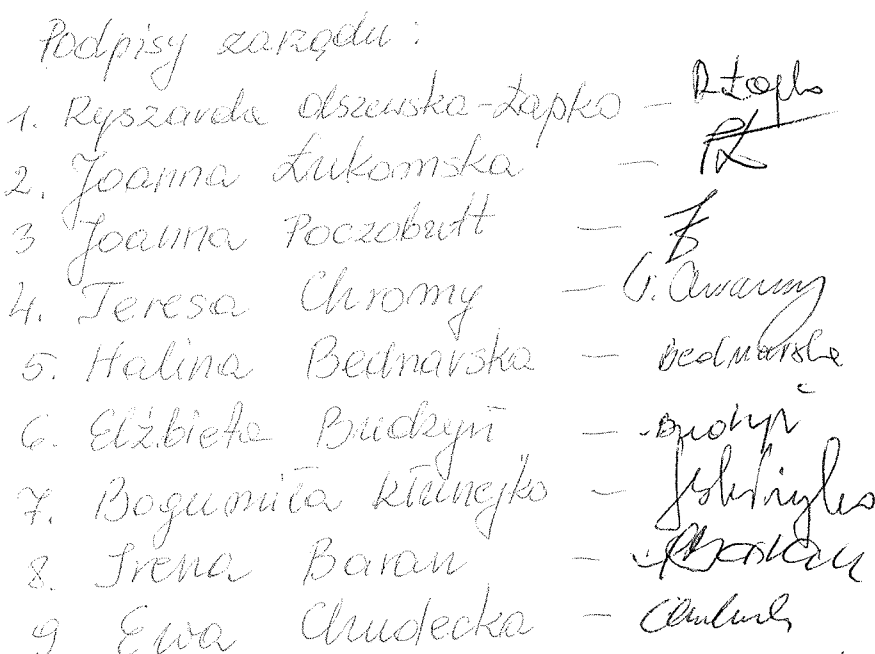 Podpisy zarządu:
1. Ryszarda Olszewska-Łapko – RŁapko
2. Joanna Łukomska –
3 Joanna Poczobutt –
4. Teresa Chromy –
5. Halina Bednarska – Bednarska
6. Elżbieta Budzyń – Budzyń
7. Bogumiła Kłunejko –
8. Irena Baran – Baran
9 Ewa Chudecka –